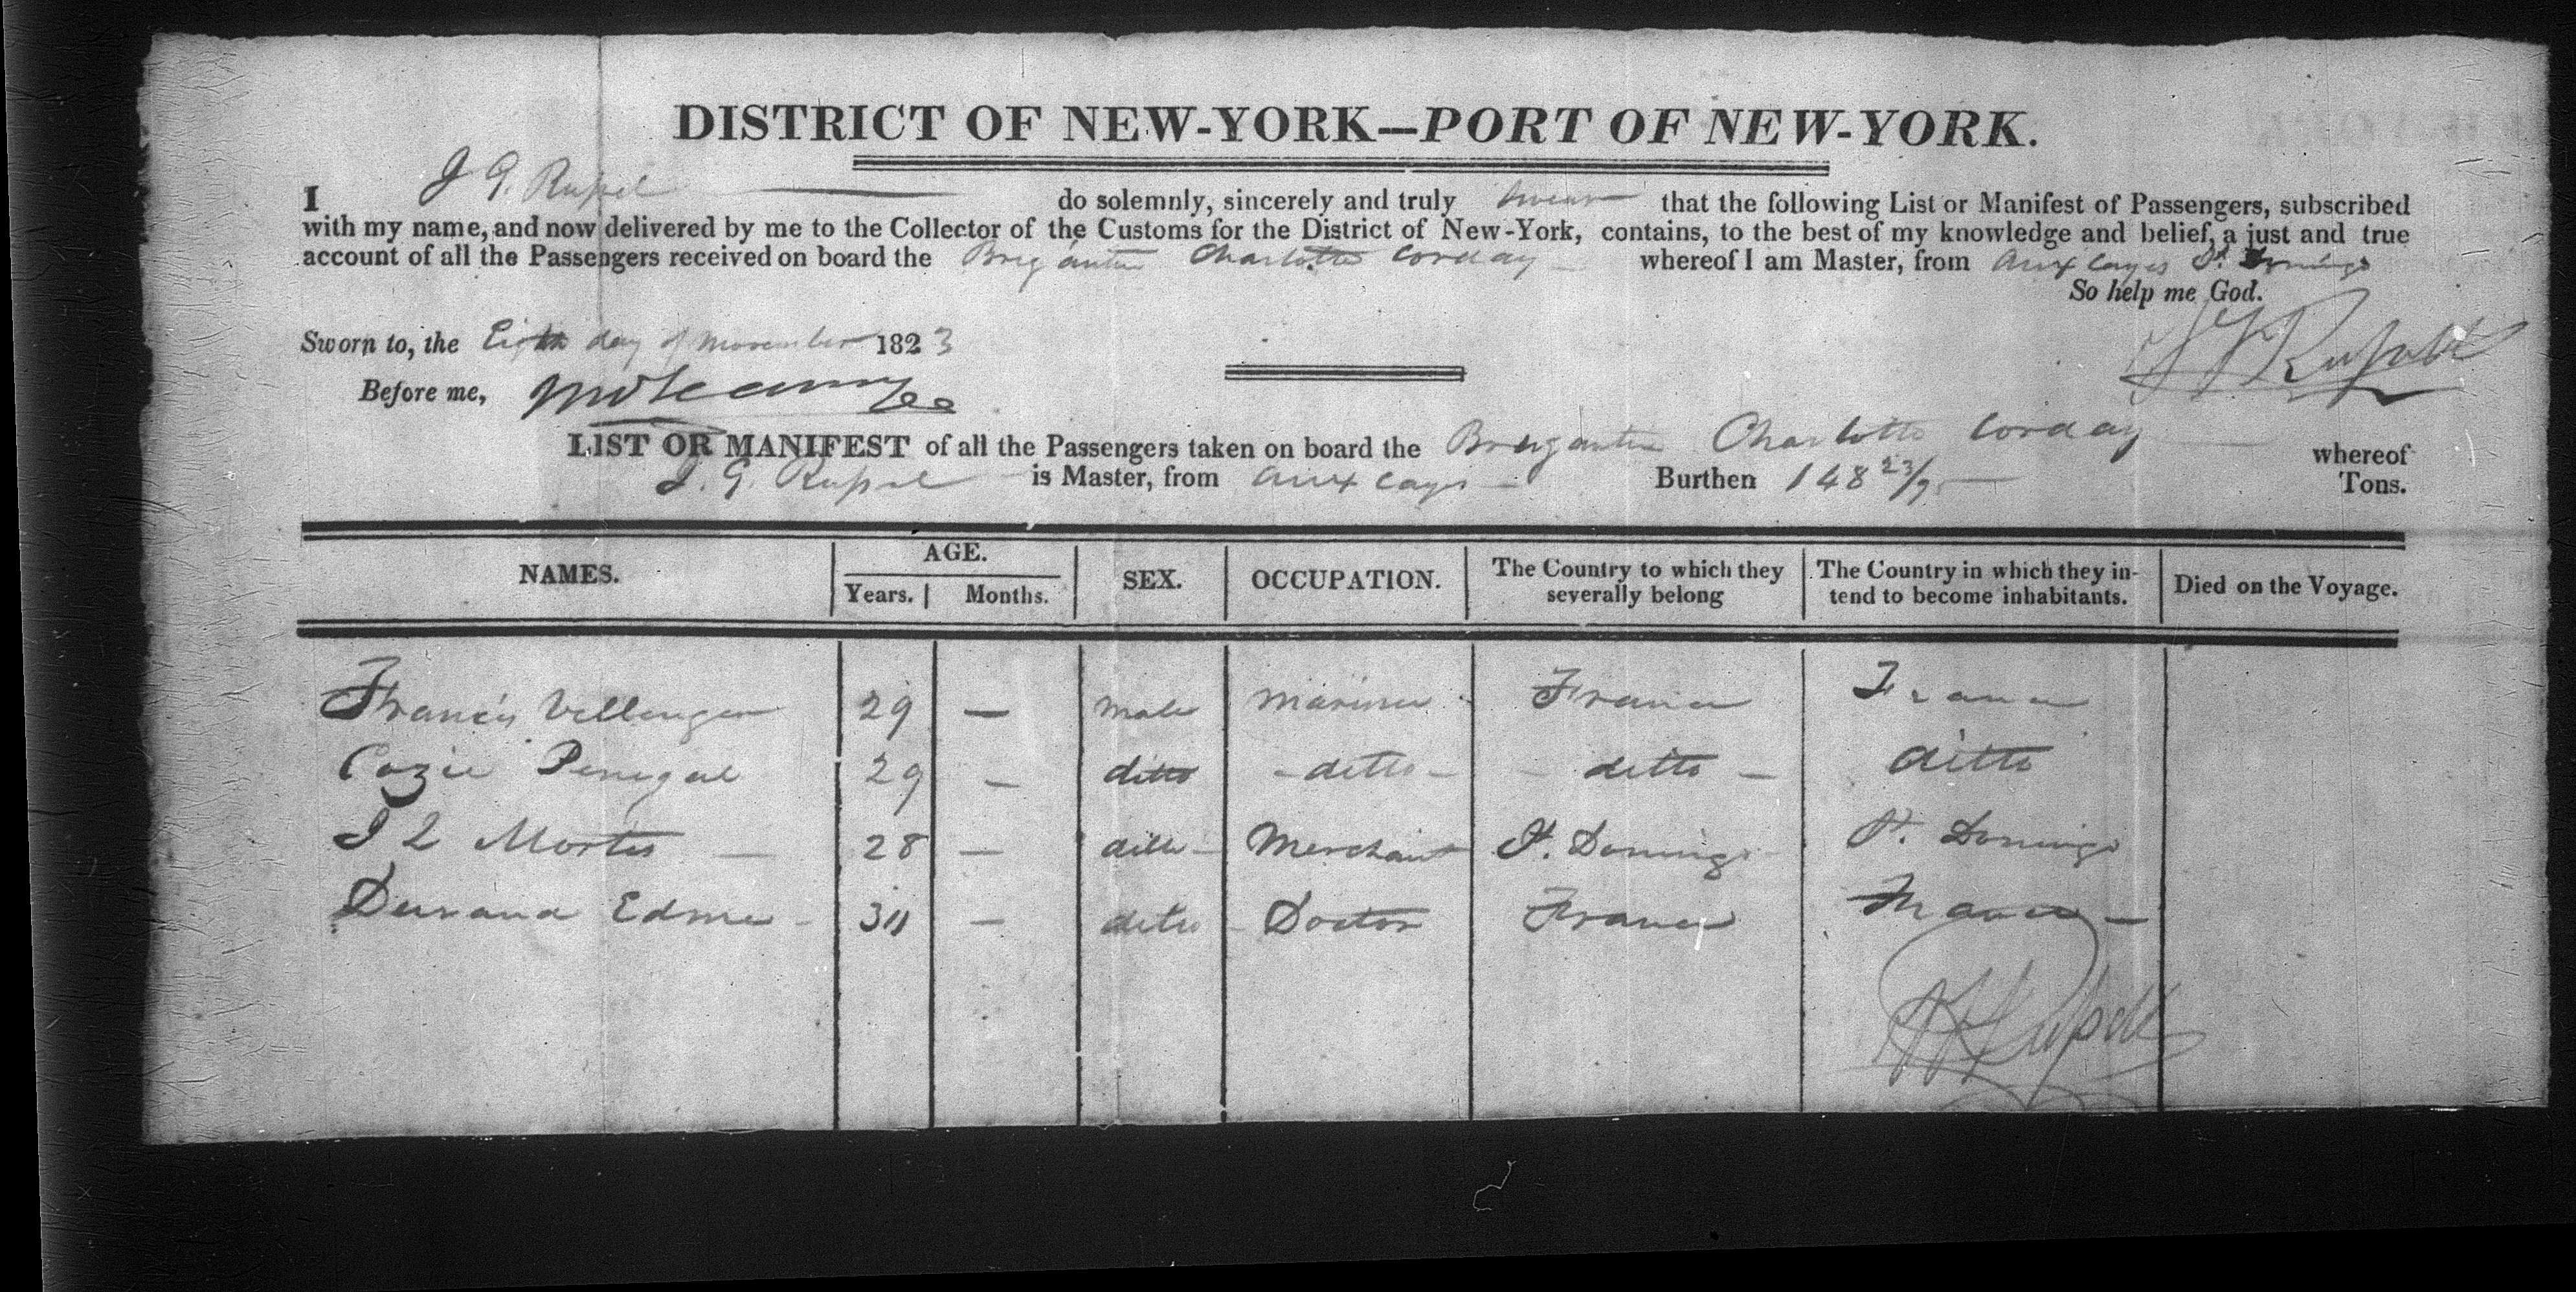 DISTRICT OF NEW-YORK—PORT OF NEW-YORK.
I J G. Russel do solemnly, sincerely and truly swear that the following List or Manifest of Passengers, subscribed
with my name, and now delivered by me to the Collector of the Customs for the District of New-York, contains, to the best of my knowledge and belief, a just and true
account of all the Passengers received on board the Brigantine Charlotte Corday whereof I am Master, from Aux Cayes St. Domingo
So help me God.
Sworn to, the Eighth day of November 1823
Before me,
LIST OR MANIFEST of all the Passengers taken on board the Brigantine Charlotte Corday whereof
J. G. Russel is Master, from Aux Cayes Burthen 148 23/95 Tons.
NAMES. AGE. Years. Months. SEX. OCCUPATION. The Country to which they severally belong The Country in which they intend to become inhabitants. Died on the Voyage.
Francis 29 — male mariner France France
Cazie Penigal 29 — ditto - ditto - - ditto - ditto
J L Mortes — 28 — ditto - Merchant St. Domingo St. Domingo
Durand Edme - 30 — ditto - Doctor France France —